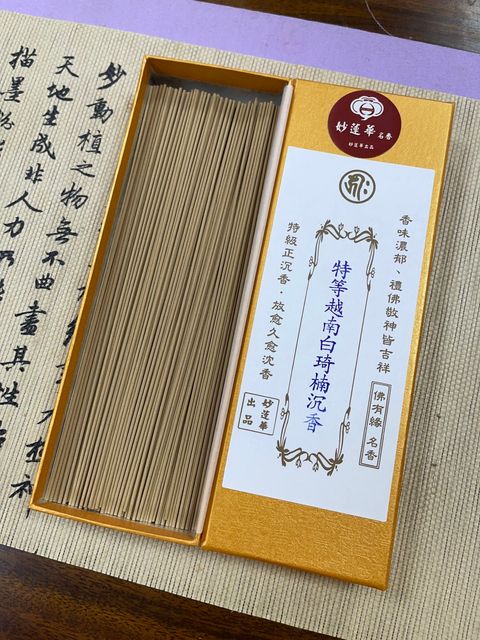 妙蓮華 名香
妙蓮華出品
香味濃郁、禮佛敬神皆吉祥
佛有緣 名香
特等越南白琦楠沉香
特級正沉香．放愈久愈沈香
妙蓮華
出品
妙動植之物無不曲盡其性
天地生成非人力
描墨